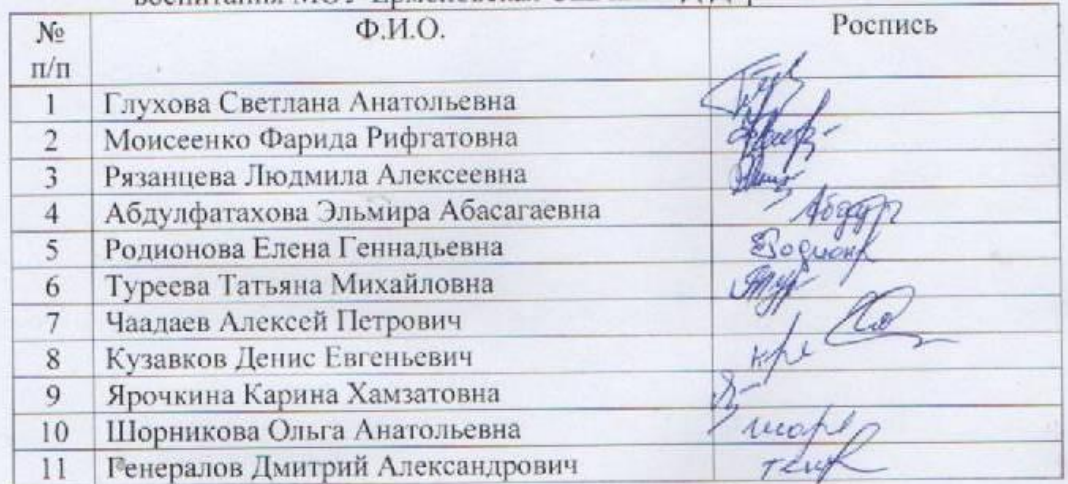 воспитания МОУ
№ п/п Ф.И.О. Роспись
1 Глухова Светлана Анатольевна
2 Моисеенко Фарида Рифгатовна
3 Рязанцева Людмила Алексеевна
4 Абдулфатахова Эльмира Абасагаевна
5 Родионова Елена Геннадьевна
6 Туреева Татьяна Михайловна
7 Чаадаев Алексей Петрович
8 Кузавков Денис Евгеньевич
9 Ярочкина Карина Хамзатовна
10 Шорникова Ольга Анатольевна
11 Генералов Дмитрий Александрович